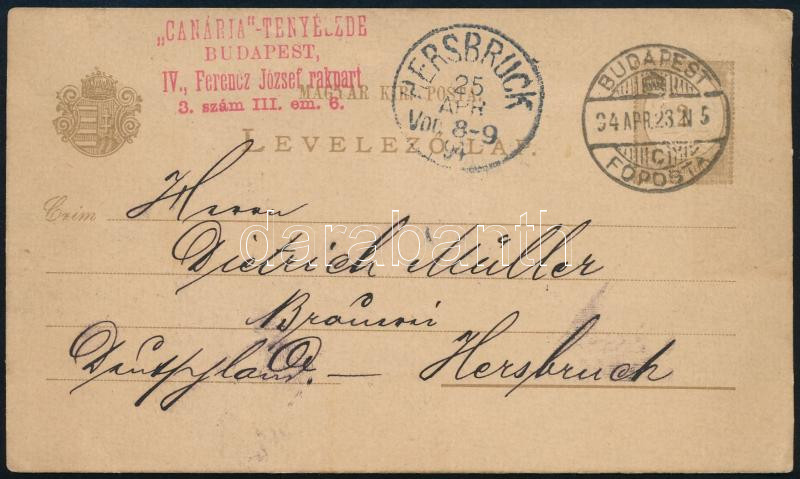 „CANÁRIA"-TENYÉSZDE
BUDAPEST,
IV., Ferencz József rakpart
3. szám III. em. 6.
MAGYAR KIR. POSTA.
LEVELEZŐ-LAP.
HERSBRUCK
25
APR
Vor. 8-9
94
BUDAPEST
94 APR. 23. N 5
FŐPOSTA
Czim
Herrn
Dietrich Müller
Deutschland. — Hersbruck
darabanth